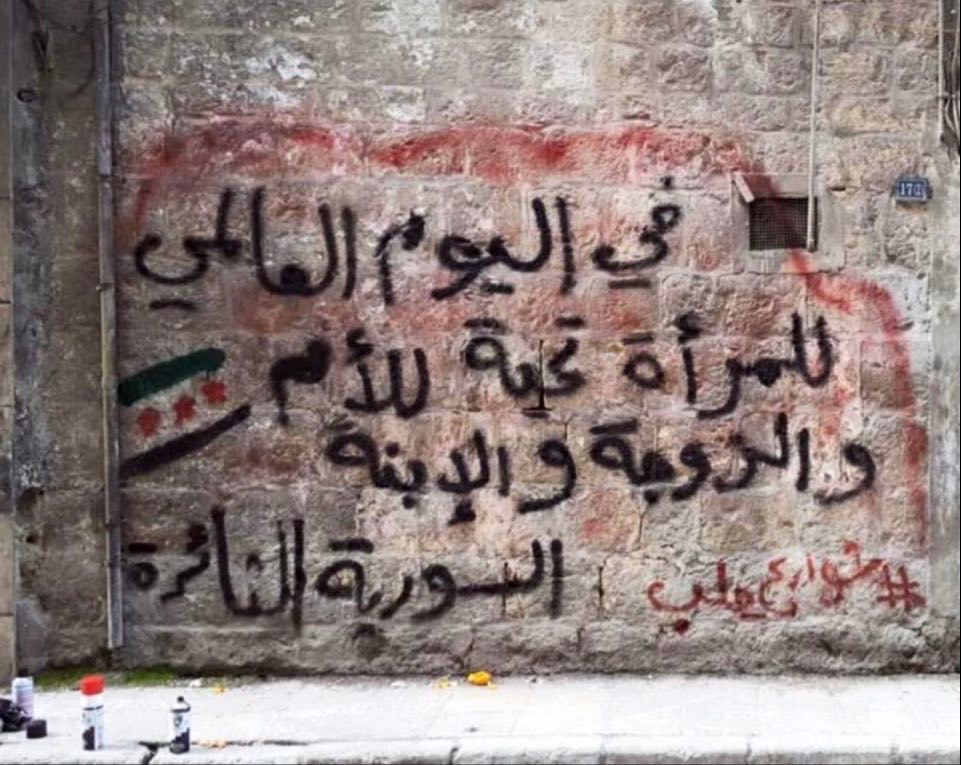 في اليوم العالمي
للمرأة تحية للأم
و الزوجة و الإبنة
السورية الثائرة
#شوارع_حلب
170